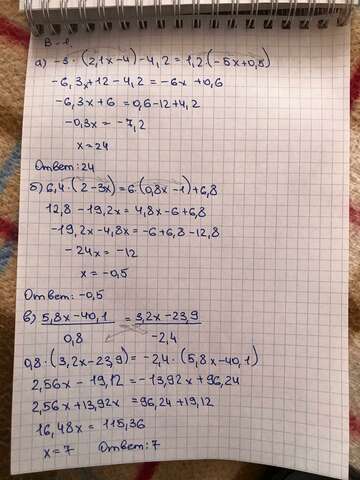 В-1.
а) -3·(2,1x-4)-4,2=1,2·(-5x+0,5)
-6,3x+12-4,2=-6x+0,6
-6,3x+6=0,6-12+4,2
-0,3x=-7,2
x=24
Ответ: 24
б) 6,4·(2-3x)=6·(0,8x-1)+6,8
12,8-19,2x=4,8x-6+6,8
-19,2x-4,8x=-6+6,8-12,8
-24x=-12
x=-0,5
Ответ: -0,5
в) 5,8x-40,1 = 3,2x-23,9
0,8 -2,4
0,8·(3,2x-23,9)=-2,4·(5,8x-40,1)
2,56x-19,12=-13,92x+96,24
2,56x+13,92x=96,24+19,12
16,48x=115,36
x=7 Ответ: 7